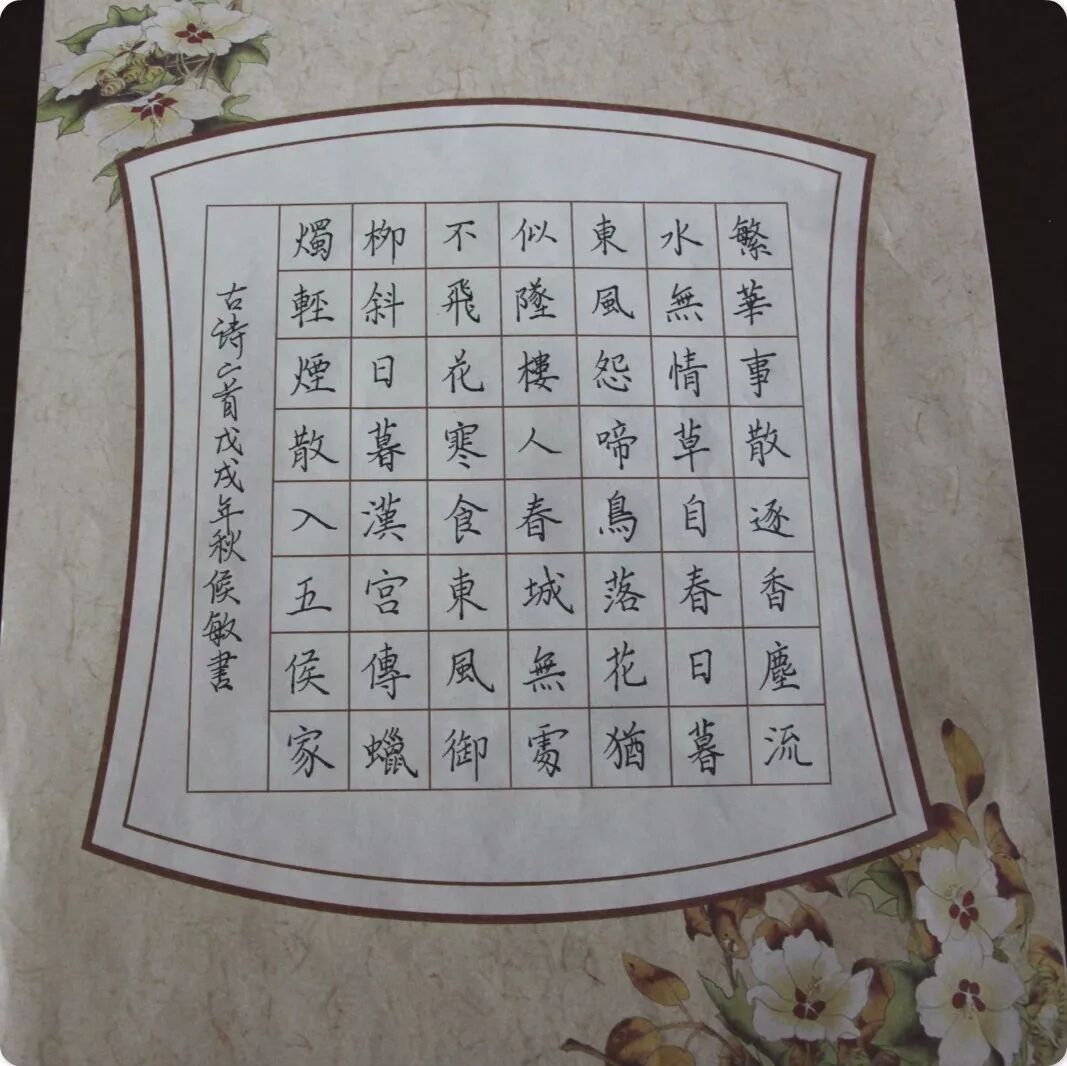 繁華事散逐香塵流
水無情草自春日暮
東風怨啼鳥落花猶
似墜樓人春城無處
不飛花寒食東風御
柳斜日暮漢宮傳蠟
燭輕煙散入五侯家
古诗二首戊戌年秋侯敏書